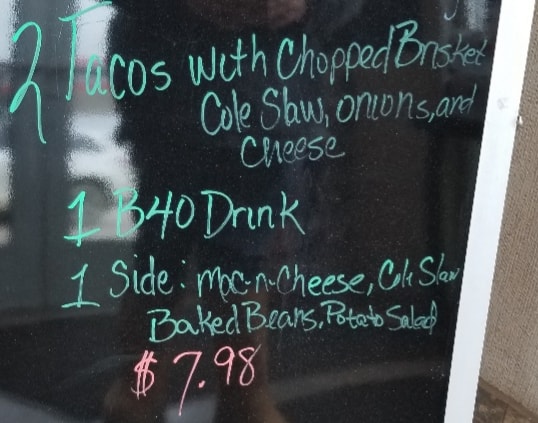 2 Tacos with Chopped Brisket
Cole Slaw, onions, and
Cheese
1 B40 Drink
1 Side: Mac-n-Cheese, Cole Slaw
Baked Beans, Potato Salad
$7.98